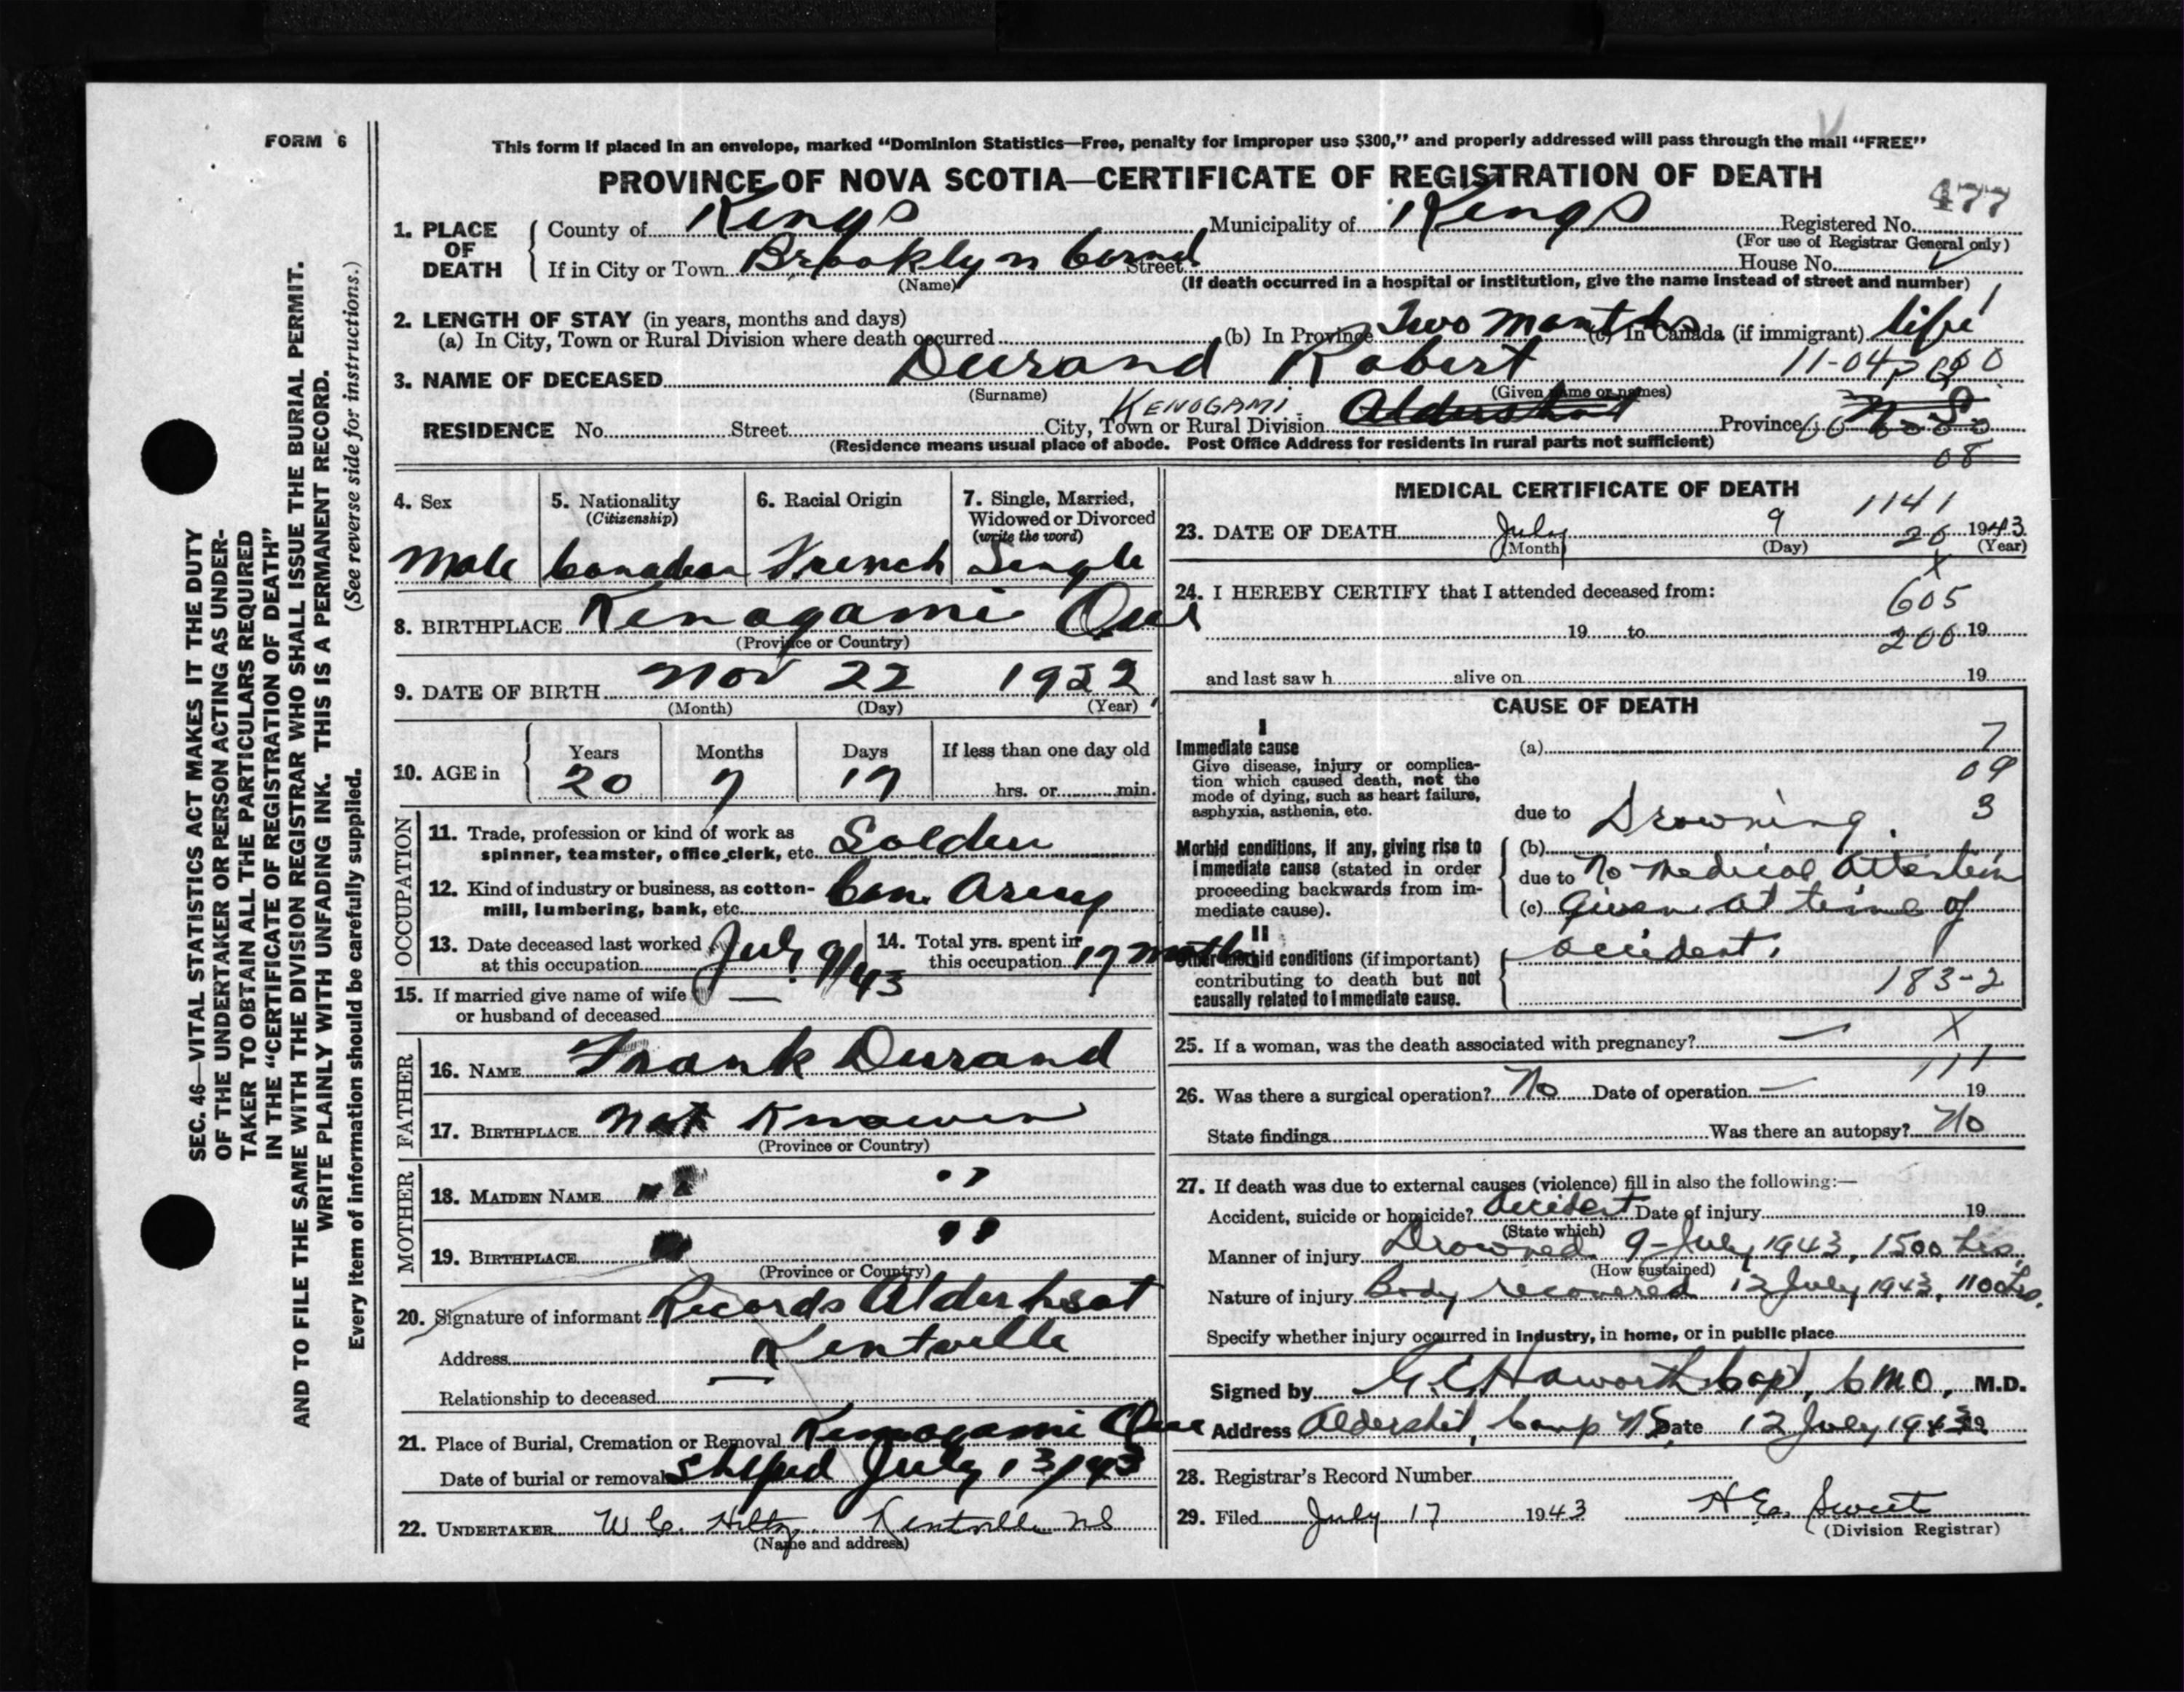 FORM 6
This form if placed in an envelope, marked “Dominion Statistics—Free, penalty for improper use $300,” and properly addressed will pass through the mail “FREE”
PROVINCE OF NOVA SCOTIA—CERTIFICATE OF REGISTRATION OF DEATH
477
1. PLACE OF DEATH
County of Kings Municipality of Kings Registered No.
(For use of Registrar General only)
If in City or Town Brooklyn Street House No.
(Name) (If death occurred in a hospital or institution, give the name instead of street and number)
2. LENGTH OF STAY (in years, months and days)
(a) In City, Town or Rural Division where death occurred (b) In Province Two months (c) In Canada (if immigrant) life
3. NAME OF DECEASED Durand Robert 11-04
(Surname) (Given name or names)
RESIDENCE No. Street City, Town or Rural Division KENOGAMI Aldershot Province N.S.
(Residence means usual place of abode. Post Office Address for residents in rural parts not sufficient)
08
4. Sex Male
5. Nationality (Citizenship) Canadian
6. Racial Origin French
7. Single, Married, Widowed or Divorced (write the word) Single
8. BIRTHPLACE Kenogami Que
(Province or Country)
9. DATE OF BIRTH Nov 22 1922
(Month) (Day) (Year)
10. AGE in Years 20 Months 7 Days 17 If less than one day old hrs. or min.
OCCUPATION
11. Trade, profession or kind of work as spinner, teamster, office clerk, etc. Solder
12. Kind of industry or business, as cotton-mill, lumbering, bank, etc. Can. Army
13. Date deceased last worked at this occupation July 9/43
14. Total yrs. spent in this occupation 17 months
15. If married give name of wife or husband of deceased —
FATHER
16. NAME Frank Durand
17. BIRTHPLACE Not Known
(Province or Country)
MOTHER
18. MAIDEN NAME " "
19. BIRTHPLACE " "
(Province or Country)
20. Signature of informant Records Aldershot
Address Kentville
Relationship to deceased —
21. Place of Burial, Cremation or Removal Kenogami Que
Date of burial or removal Shiped July 13/43
22. UNDERTAKER W C. Hiltz Kentville NS
(Name and address)
MEDICAL CERTIFICATE OF DEATH
1141
23. DATE OF DEATH July 9 26 1943
(Month) (Day) (Year)
X
24. I HEREBY CERTIFY that I attended deceased from:
605
19 to 200 19
and last saw h alive on 19
CAUSE OF DEATH
I
Immediate cause
Give disease, injury or complication which caused death, not the mode of dying, such as heart failure, asphyxia, asthenia, etc.
(a) 7
09
due to Drowning. 3
Morbid conditions, if any, giving rise to immediate cause (stated in order proceeding backwards from immediate cause).
(b)
due to No medical attention
(c) Given at time of
II
Other morbid conditions (if important) contributing to death but not causally related to immediate cause.
accident. 1
183-2
25. If a woman, was the death associated with pregnancy? — X
111
26. Was there a surgical operation? No Date of operation — 19
State findings Was there an autopsy? No
27. If death was due to external causes (violence) fill in also the following:—
Accident, suicide or homicide? Accident Date of injury 19
(State which)
Manner of injury Drowned 9-July 1943, 1500 hrs.
(How sustained)
Nature of injury Body recovered 12 July 1943, 1100 hrs.
Specify whether injury occurred in industry, in home, or in public place
Signed by G.C. Haworth Capt, CMO, M.D.
Address Aldershot, Camp N.S. Date 12 July 1943 19
28. Registrar's Record Number
29. Filed July 17 1943 H E. Sweet
(Division Registrar)
SEC. 46—VITAL STATISTICS ACT MAKES IT THE DUTY
OF THE UNDERTAKER OR PERSON ACTING AS UNDER-
TAKER TO OBTAIN ALL THE PARTICULARS REQUIRED
IN THE “CERTIFICATE OF REGISTRATION OF DEATH”
AND TO FILE THE SAME WITH THE DIVISION REGISTRAR WHO SHALL ISSUE THE BURIAL PERMIT.
WRITE PLAINLY WITH UNFADING INK. THIS IS A PERMANENT RECORD.
Every item of information should be carefully supplied. (See reverse side for instructions.)